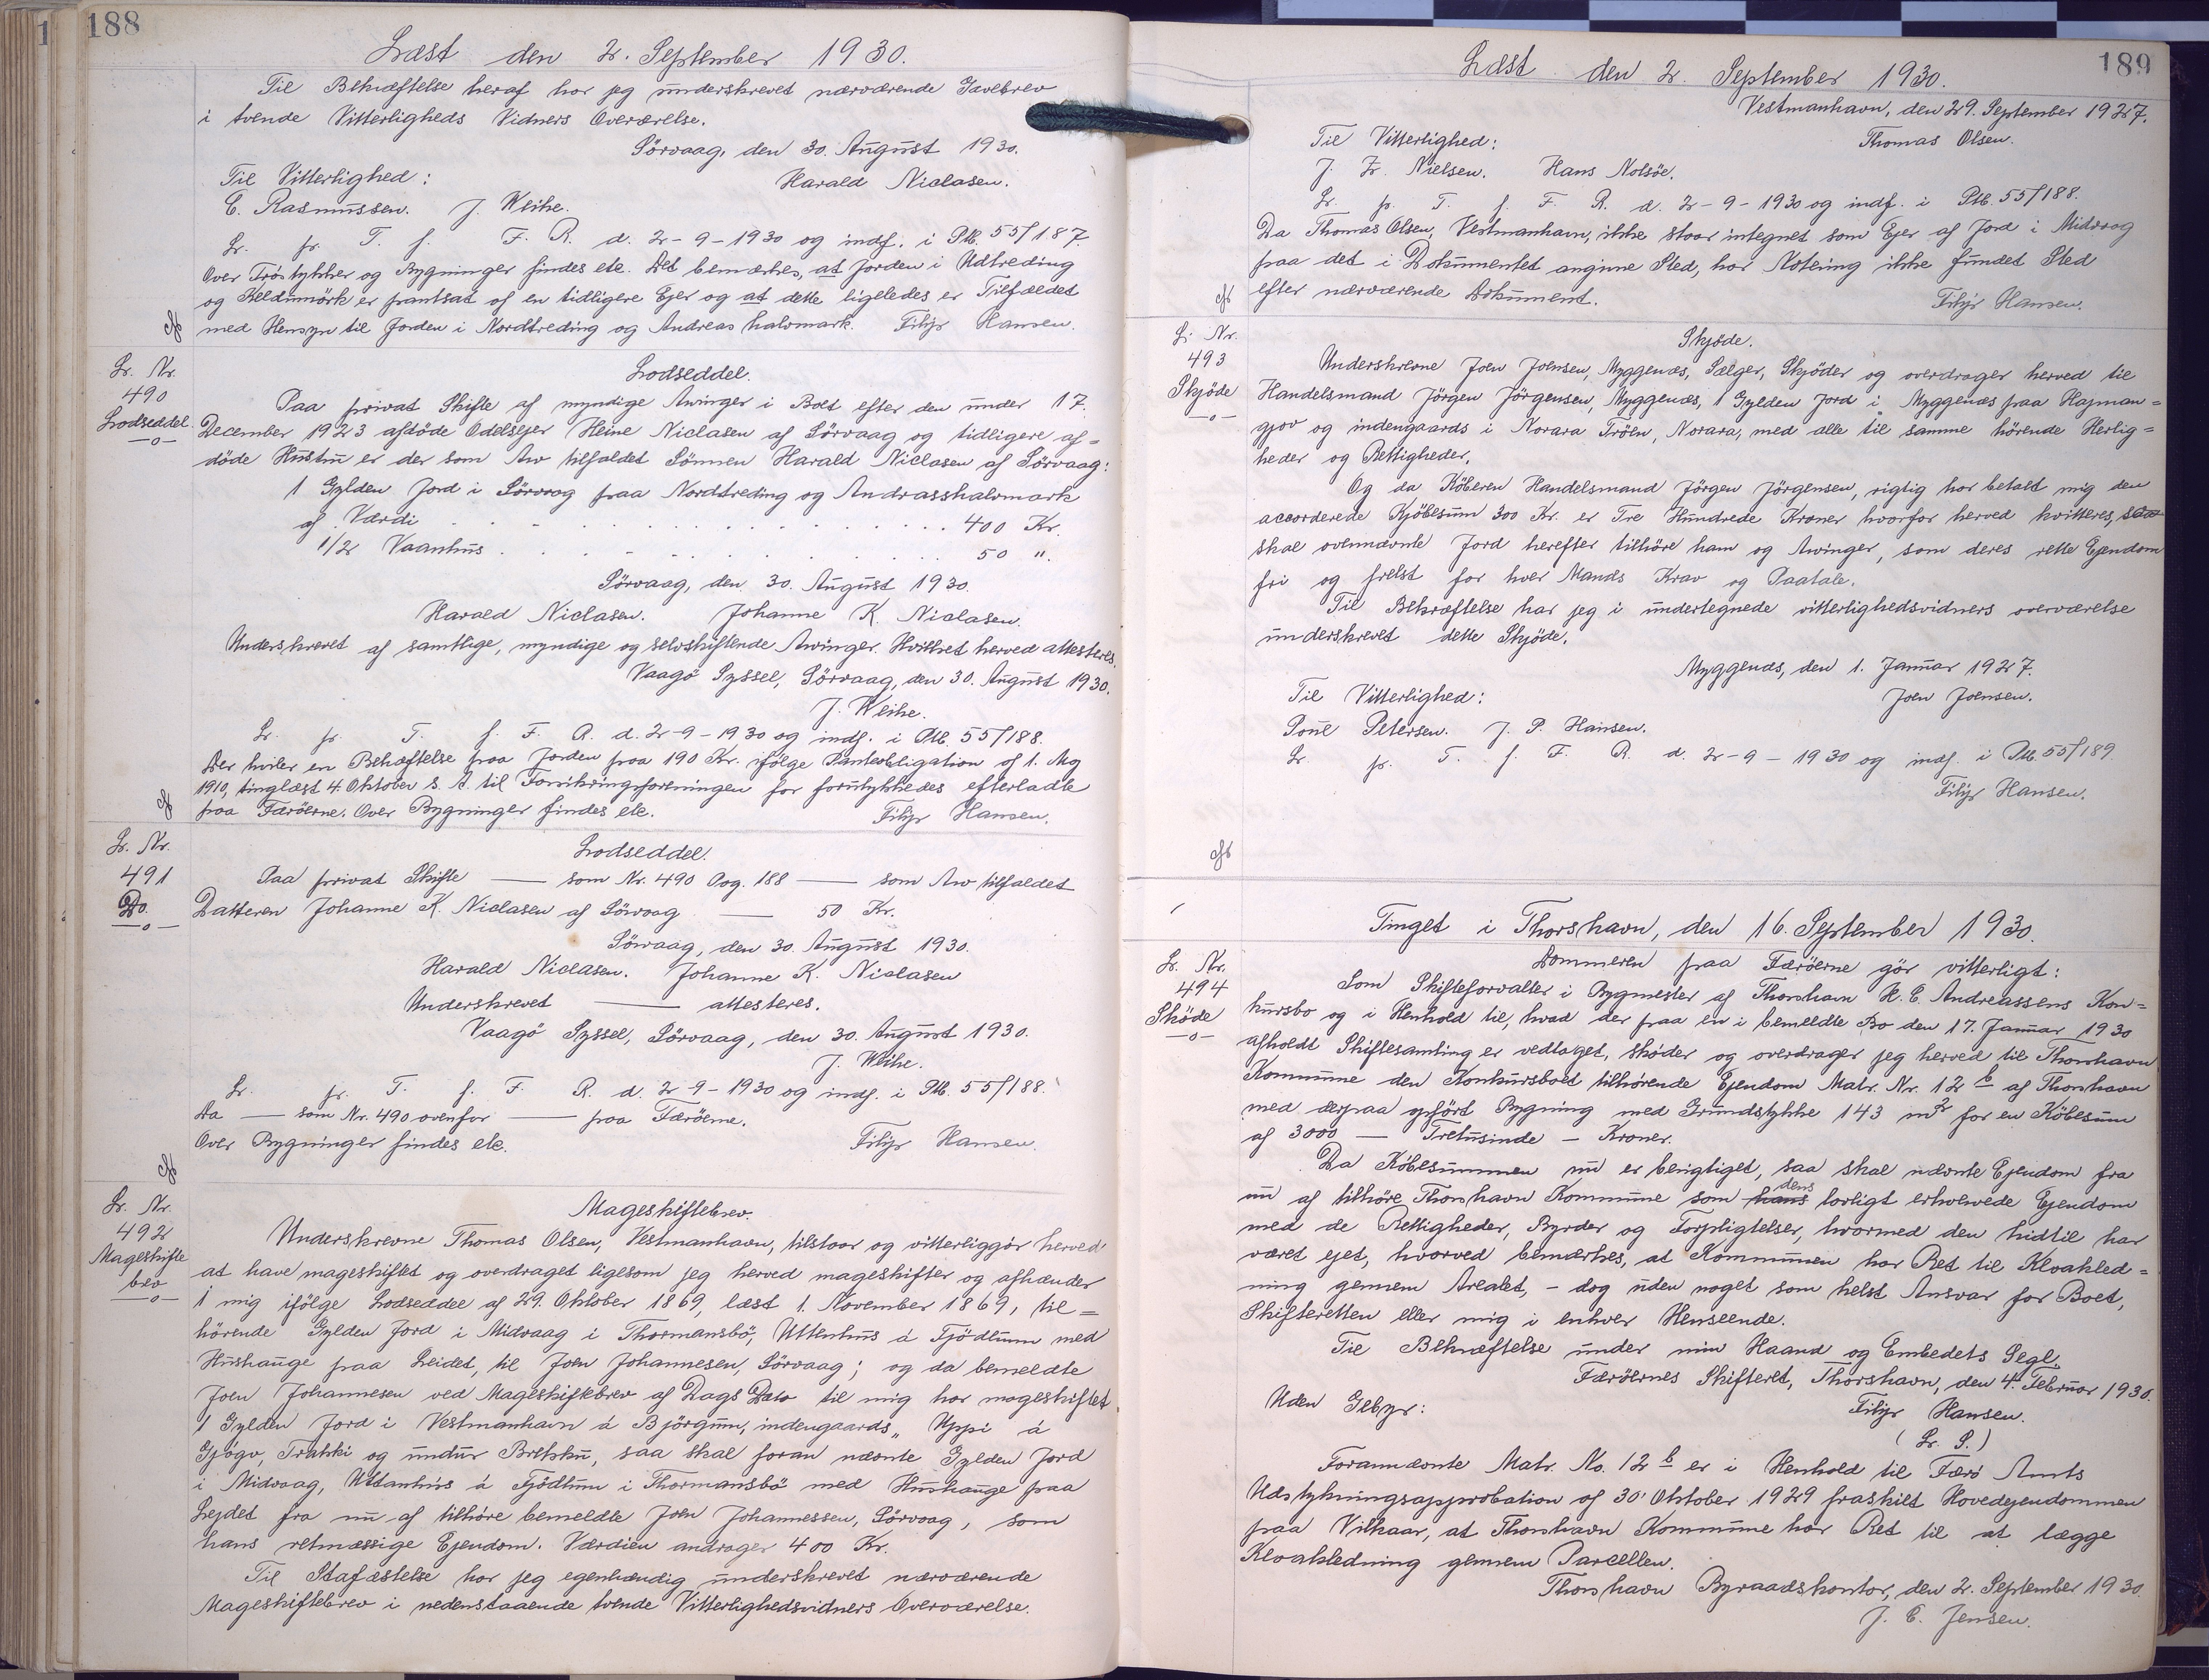 188
Læst den 2. September 1930.
Til Bekræftelse heraf har jeg underskrevet nærværende Gavebrev
i tvende Vitterligheds Vidners Overværelse.
Sörvaag, den 30. August 1930.
Til Vitterlighed: Harald Niclasen.
E. Rasmussen. J. Weihe.
Lr. pr. T. f. F. R. d. 2-9-1930 og indf. i Ptb. 55f187
Over Tröstykker og Bygninger findes etc. Det bemærkes, at Jorden i Udtreding
og Keldumörk er pantsat af en tidligere Ejer og at dette ligeledes er Tilfældet
med Hensyn til Jorden i Nordtreding og Andreas halvmark. Filip Hansen.
Lr. Nr.
490
Lodseddel
—o—
Lodseddel.
Paa privat Skifte af myndige Arvinger i Boet efter den under 17.
December 1923 afdöde Odelsejer Heine Niclasen af Sörvaag og tidligere af=
döde Hustru er der som Arv tilfaldet Sönnen Harald Niclasen af Sörvaag:
1 Gylden Jord i Sörvaag paa Nordtreding og Andrasshalvmark
af Værdi . . . . . . . . . . . . . 400 Kr.
1/2 Vaanhus . . . . . . . . . . . . 50 ".
Sörvaag, den 30. August 1930.
Harald Niclasen. Johanne K. Niclasen.
Underskrevet af samtlige, myndige og selvskiftende Arvinger. Hvilket herved attesteres.
Vaagö Syssel, Sörvaag, den 30. August 1930.
J. Weihe.
Lr. pr. T. f. F. R. d. 2-9-1930 og indf. i Ptb. 55f188.
Der hviler en Behæftelse paa Jorden paa 190 Kr. ifölge Panteobligation af 1. Maj
1910, tinglæst 4. Oktober s. A. til Forsikringsforeningen for forulykkedes efterladte
paa Færöerne. Over Bygninger findes etc. Filip Hansen.
Lr. Nr.
491
Do.
—o—
Lodseddel.
Paa privat Skifte —— som Nr. 490 Pag. 188 —— som Arv tilfaldet
Datteren Johanne K. Niclasen af Sörvaag —— 50 Kr.
Sörvaag, den 30. August 1930.
Harald Niclasen. Johanne K. Niclasen
Underskrevet —— attesteres.
Vaagö Syssel, Sörvaag, den 30. August 1930.
J. Weihe.
Lr. pr. T. f. F. R. d. 2-9-1930 og indf. i Ptb. 55f188.
Da —— som Nr. 490 ovenfor —— paa Færöerne.
Over Bygninger findes etc. Filip Hansen.
Lr. Nr.
492
Mageskifte
brev
—o—
Mageskiftebrev.
Underskrevne Thomas Olsen, Vestmanhavn, tilstaar og vitterliggör herved
at have mageskiftet og overdraget ligesom jeg herved mageskifter og afhænder
1 mig ifölge Lodseddel af 29. Oktober 1869, læst 1. November 1869, til=
hörende Gylden Jord i Midvaag i Thormansbö, Uttenhus á Tjödlum med
Hushauge paa Leidet, til Joen Johannesen, Sörvaag; og da bemeldte
Joen Johannesen ved Mageskiftebrev af Dags Dato til mig har mageskiftet
1 Gylden Jord i Vestmanhavn á Björgum, indengaards „ Uppi á
Gjögv, Trakki og undur Brekku, saa skal foran nævnte Gylden Jord
i Midvaag, Uttanhús á Tjödlum i Thormansbö med Hushauge paa
Lejdet fra nu af tilhöre bemeldte Joen Johannessen, Sörvaag, som
hans retmæssige Ejendom. Værdien andrager 400 Kr.
Til Stafæstelse har jeg egenhændig underskrevet nærværende
Mageskiftebrev i nedenstaaende tvende Vitterlighedsvidners Overværelse.
189
Læst den 2. September 1930.
Vestmanhavn, den 29. September 1927.
Til Vitterlighed: Thomas Olsen.
J. Fr. Nielsen. Hans Nolsöe.
Lr. pr. T. f. F. R. d. 2-9-1930 og indf. i Ptb. 55f188.
Da Thomas Olsen, Vestmanhavn, ikke staar integnet som Ejer af Jord i Midvaag
paa det i Dokumentet angivne Sted, har Notering ikke fundet Sted
efter nærværende Dokument. Filip Hansen.
Lr. Nr.
493
Skjöde
—o—
Skjöde.
Underskrevne Joen Joensen, Myggenæs, Sælger, Skjöder og overdrager herved til
Handelsmand Jörgen Jörgensen, Myggenæs, 1 Gylden Jord i Myggenæs paa Hajman=
gjov og indengaards i Norara Tröen, Norara, med alle til samme hörende Herlig=
heder og Rettigheder.
Og da Köberen Handelsmand Jörgen Jörgensen, rigtig har betalt mig den
accorderede Kjöbesum 300 Kr. er Tre Hundrede Kroner hvorfor herved kvitteres, saa
skal ovennævnte Jord herefter tilhöre ham og Arvinger, som deres rette Ejendom
fri og frelst for hver Mands Krav og Paatale.
Til Bekræftelse har jeg i undertegnede vitterlighedsvidners overværelse
underskrevet dette Skjöde.
Myggenæs, den 1. Januar 1927.
Til Vitterlighed: Joen Joensen.
Poul Petersen. J. P. Hansen.
Lr. pr. T. f. F. R. d. 2-9-1930 og indf. i Ptb. 55f189
Filip Hansen.
Tinget i Thorshavn, den 16. September 1930.
Lr. Nr.
494
Sköde
—o—
Dommeren paa Færöerne gör vitterligt:
Som Skifteforvalter i Bygmester af Thorshavn H. C. Andreassens Kon=
kursbo og i Henhold til, hvad der paa en i bemeldte Bo den 17. Januar 1930
afholdt Skiftesamling er vedtaget, sköder og overdrager jeg herved til Thorshavn
Kommune den Konkursboet tilhörende Ejendom Matr. Nr. 12 b af Thorshavn
med derpaa opfört Bygning med Grundstykke 143 m2 for en Köbesum
af 3000 — Tretusinde — Kroner.
Da Köbesummen nu er berigtiget, saa skal nævnte Ejendom fra
nu af tilhöre Thorshavn Kommune som hans dens lovligt erhvervede Ejendom
med de Rettigheder, Byrder og Forpligtelser, hvormed den hidtil har
været ejet, hvorved bemærkes, at Kommunen har Ret til Kloakled=
ning gennem Arealet, - dog uden noget som helst Ansvar for Boet,
Skifteretten eller mig i enhver Henseende.
Til Bekræftelse under min Haand og Embedets Segl.
Færöernes Skifteret, Thorshavn, den 4. Februar 1930.
Uden Gebyr: Filip Hansen.
(L. S.)
Forannævnte Matr. No. 12 b er i Henhold til Færö Amts
Udstykningsapprobation af 30' Oktober 1929 fraskilt Hovedejendommen
paa Vilkaar, at Thorshavn Kommune har Ret til at lægge
Kloakledning gennem Parcellen.
Thorshavn Byraadskontor, den 2. September 1930.
J. C. Jensen.